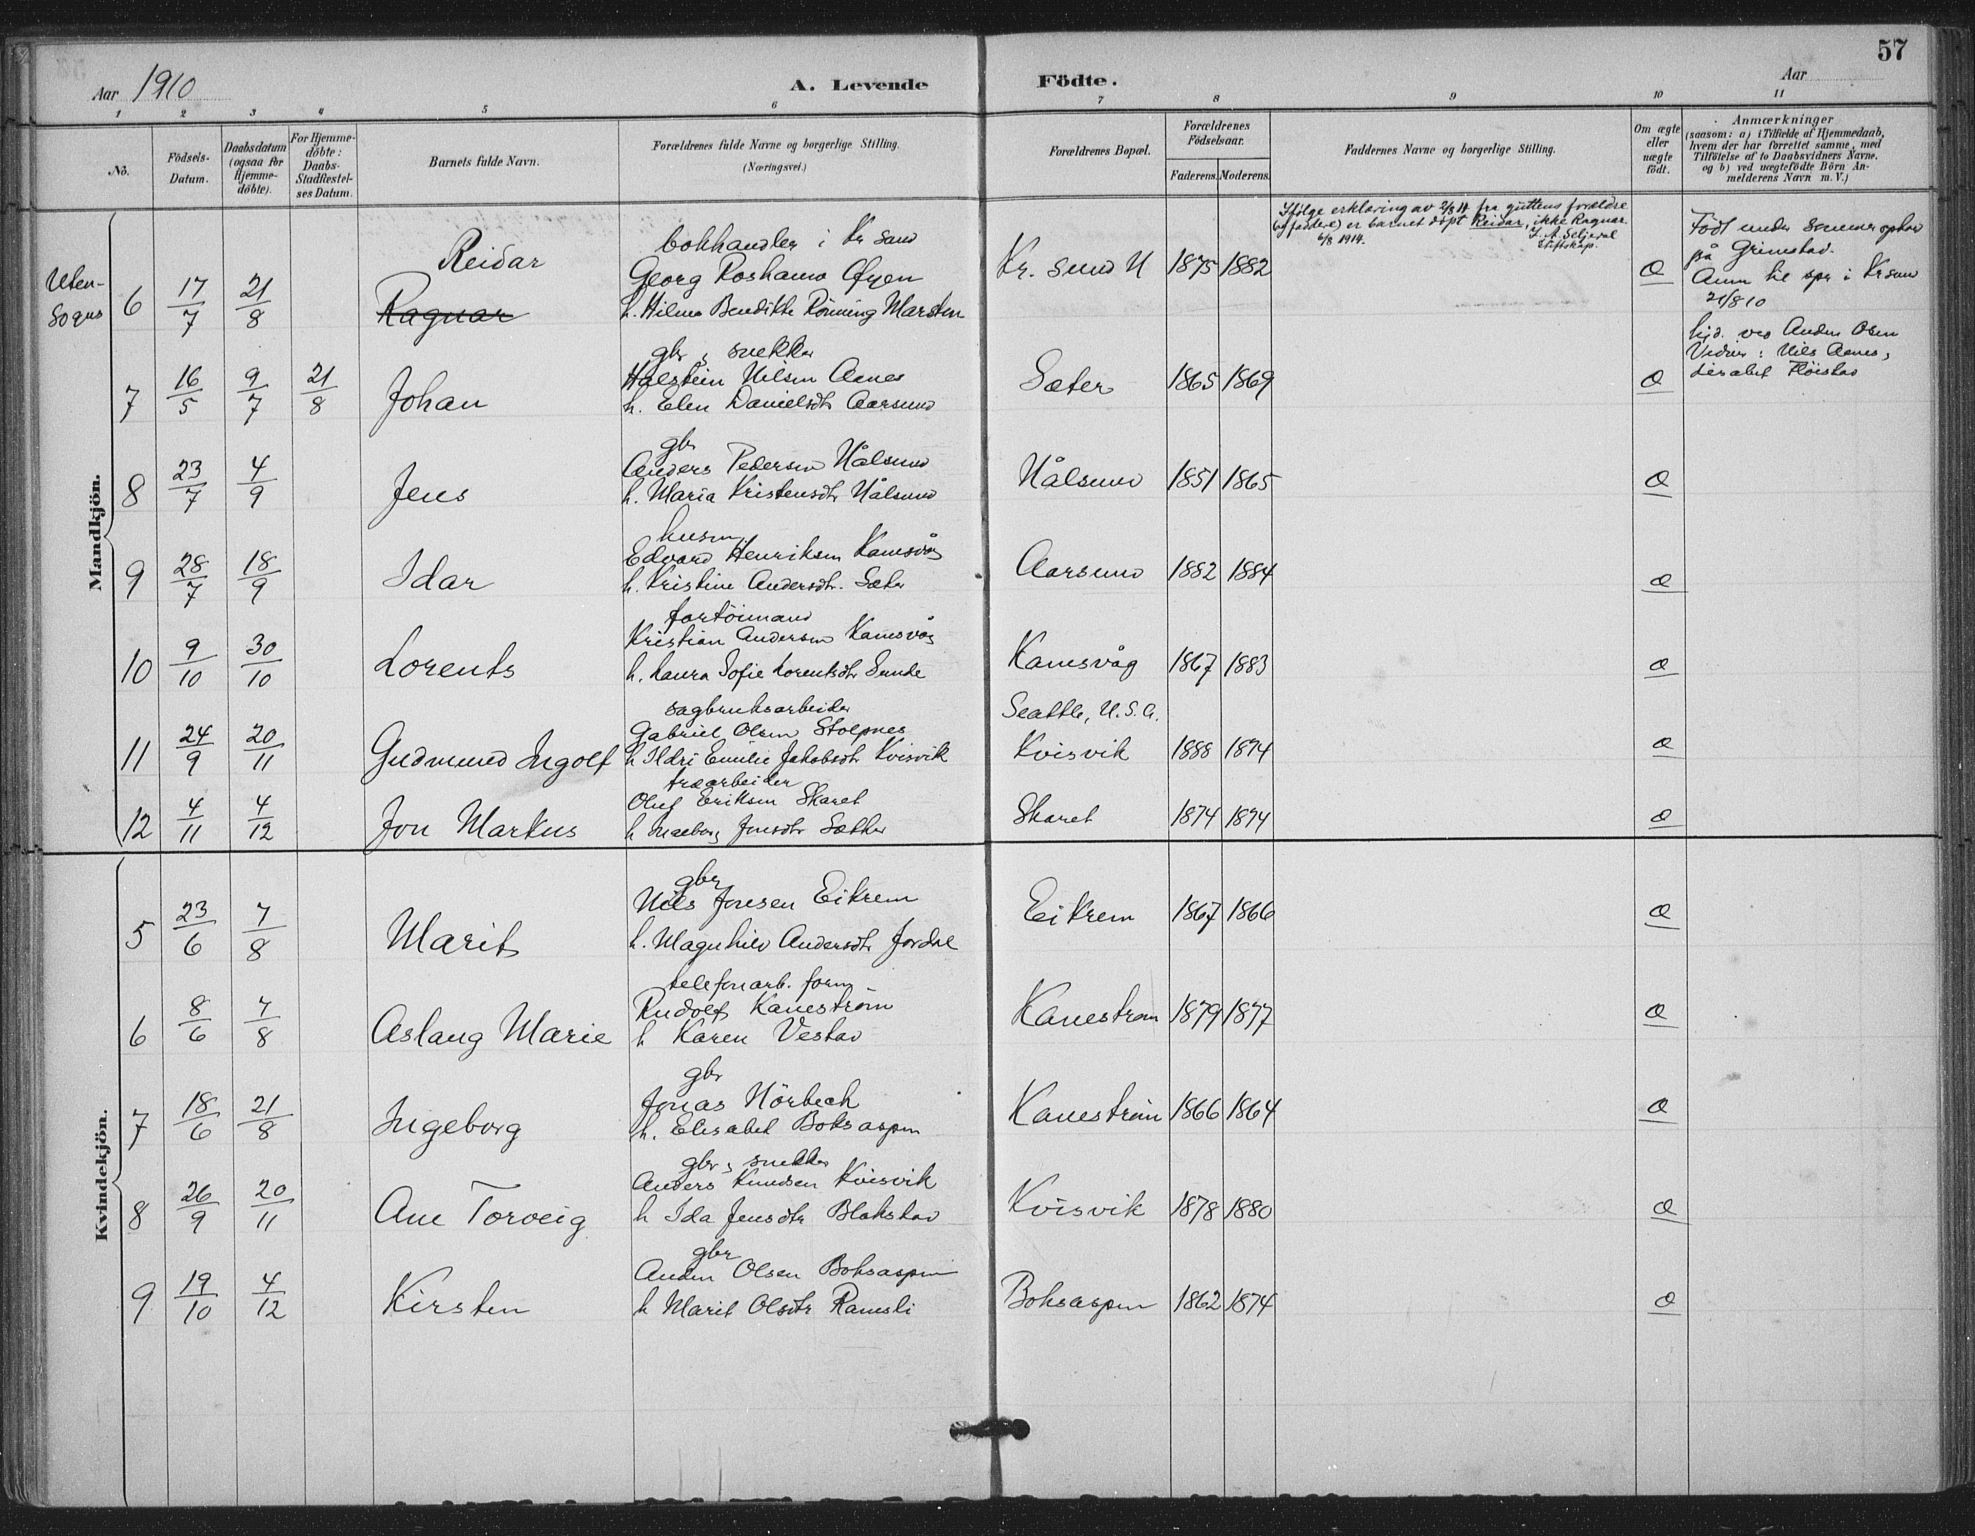 57
Aar 1910
A. Levende Födte.
Aar
1 2 3 4 5 6 7 8 9 10 11
No.
Födsels-Datum.
Daabsdatum (ogsaa for Hjemmedöbte).
For Hjemmedöbte: Daabs-Stadfestelses Datum.
Barnets fulde Navn.
Forældrenes fulde Navne og borgerlige Stilling. (Næringsvei.)
Forældrenes Bopæl.
Forældrenes Födselsaar.
Faderens. Moderens.
Faddernes Navne og borgerlige Stilling.
Om ægte eller uægte födt.
Anmærkninger (saasom: a) i Tilfælde af Hjemmedaab, hvem der har forrettet samme, med Tilföielse af to Daabsvidners Navne, og b) ved uægtefödte Börn Anmelderens Navn m. V.)
Mandkjön.
Uten-
Sogns
6 17/7 21/8 Reidar
Ragnar
bokhandler i Kr sund
Georg Roshauw Øyen
h. Hilma Bendikte Rönning Marsten
Kr. sund N 1875 1882
Ifølge erklæring av 2/8 14 fra guttens forældre
(og faddere) er barnet döpt Reidar, ikke Ragnar.
6/8 1914.
Æ
Födt under sommerophol
på Grimstad.
Anm til spr i Kr sund
21/8 10
7 16/5 9/7 21/8 Johan
gbr, snekker
Halstein Nilsen Aanes
h. Elen Danielsdtr Aarsund
Sæter 1865 1869 Æ
hjd. ved Anders Osen
Vidner: Nils Aanes,
8 23/7 4/9 Jens
gbr
Anders Pedersen Nålsund
h. Maria Kristensdtr Nålsund
Nålsund 1851 1865 Æ
9 28/7 18/9 Idar
husm
Edvard Henriksen Kamsvåg
h. Kristine Andersdtr. Sæter
Aarsund 1882 1884 Æ
10 9/10 30/10 Lorents
fartöimand
Kristian Andersen Kamsvåg
h. Laura Sofie Lorentsdtr Sunde
Kamsvåg 1867 1883 Æ
11 24/9 20/11 Gudmund Ingolf
sagbruksarbeider
Gabriel Olsen Stolpnes
h Ildri Emilie Jakobsdtr Kvisvik
Seattle, U.S.A.
Kvisvik 1888 1894 Æ
12 4/11 4/12 Jon Markus
træarbeider
Oluf Eriksen Skaret
h Ingeborg Jonsdtr Sæther
Skaret 1874 1874 Æ
Kvindekjön.
5 23/6 7/8 Marit
gbr
Nils Jonsen Eikrem
h. Magnhild Andersdtr Jordal
Eikrem 1867 1866 Æ
6 8/6 7/8 Aslaug Marie
telefonarb. form
Rudolf Kanestrøm
h Karen Vestad
Kanestrøm 1879 1877 Æ
7 18/6 21/8 Ingeborg
gbr
Jonas Nörbech
h. Elisabet Boksaspen
Kanestrøm 1866 1864 Æ
8 26/9 20/11 Ane Torveig
gbr, snekker
Anders Knudsen Kvisvik
h Ida Jensdtr Blakstad
Kvisvik 1878 1880 Æ
9 19/10 4/12 Kirsten
gbr
Anders Olsen Boksaspen
h Marit Olsdtr Ramsli
Boksaspen 1862 1874 Æ